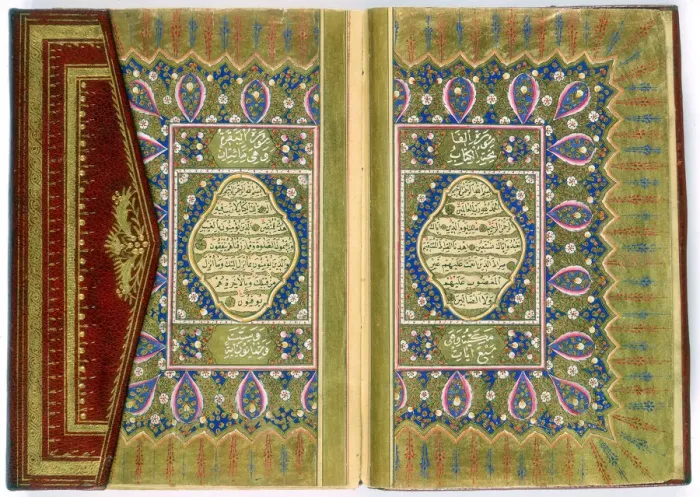 سورة الفا
تحة الكتاب
بسم الله الرحمن الرحيم
الحمد لله رب العالمين
الرحمن الرحيم مالك يوم الدين اياك
نعبد واياك نستعين اهدنا الصراط المستقيم
صراط الذين انعمت عليهم غير
المغضوب عليهم
ولا الضالين
مكية وهي
سبع آيات
سورة البقرة
وهي مائتان
بسم الله الرحمن الرحيم
الم ذلك الكتاب لا ريب
فيه هدى للمتقين الذين
يؤمنون بالغيب ويقيمون الصلوة ومما رزقناهم ينفقون
والذين يؤمنون بما انزل اليك وما انزل
من قبلك وبالآخرة هم
يوقنون
وست
وثمانون آية